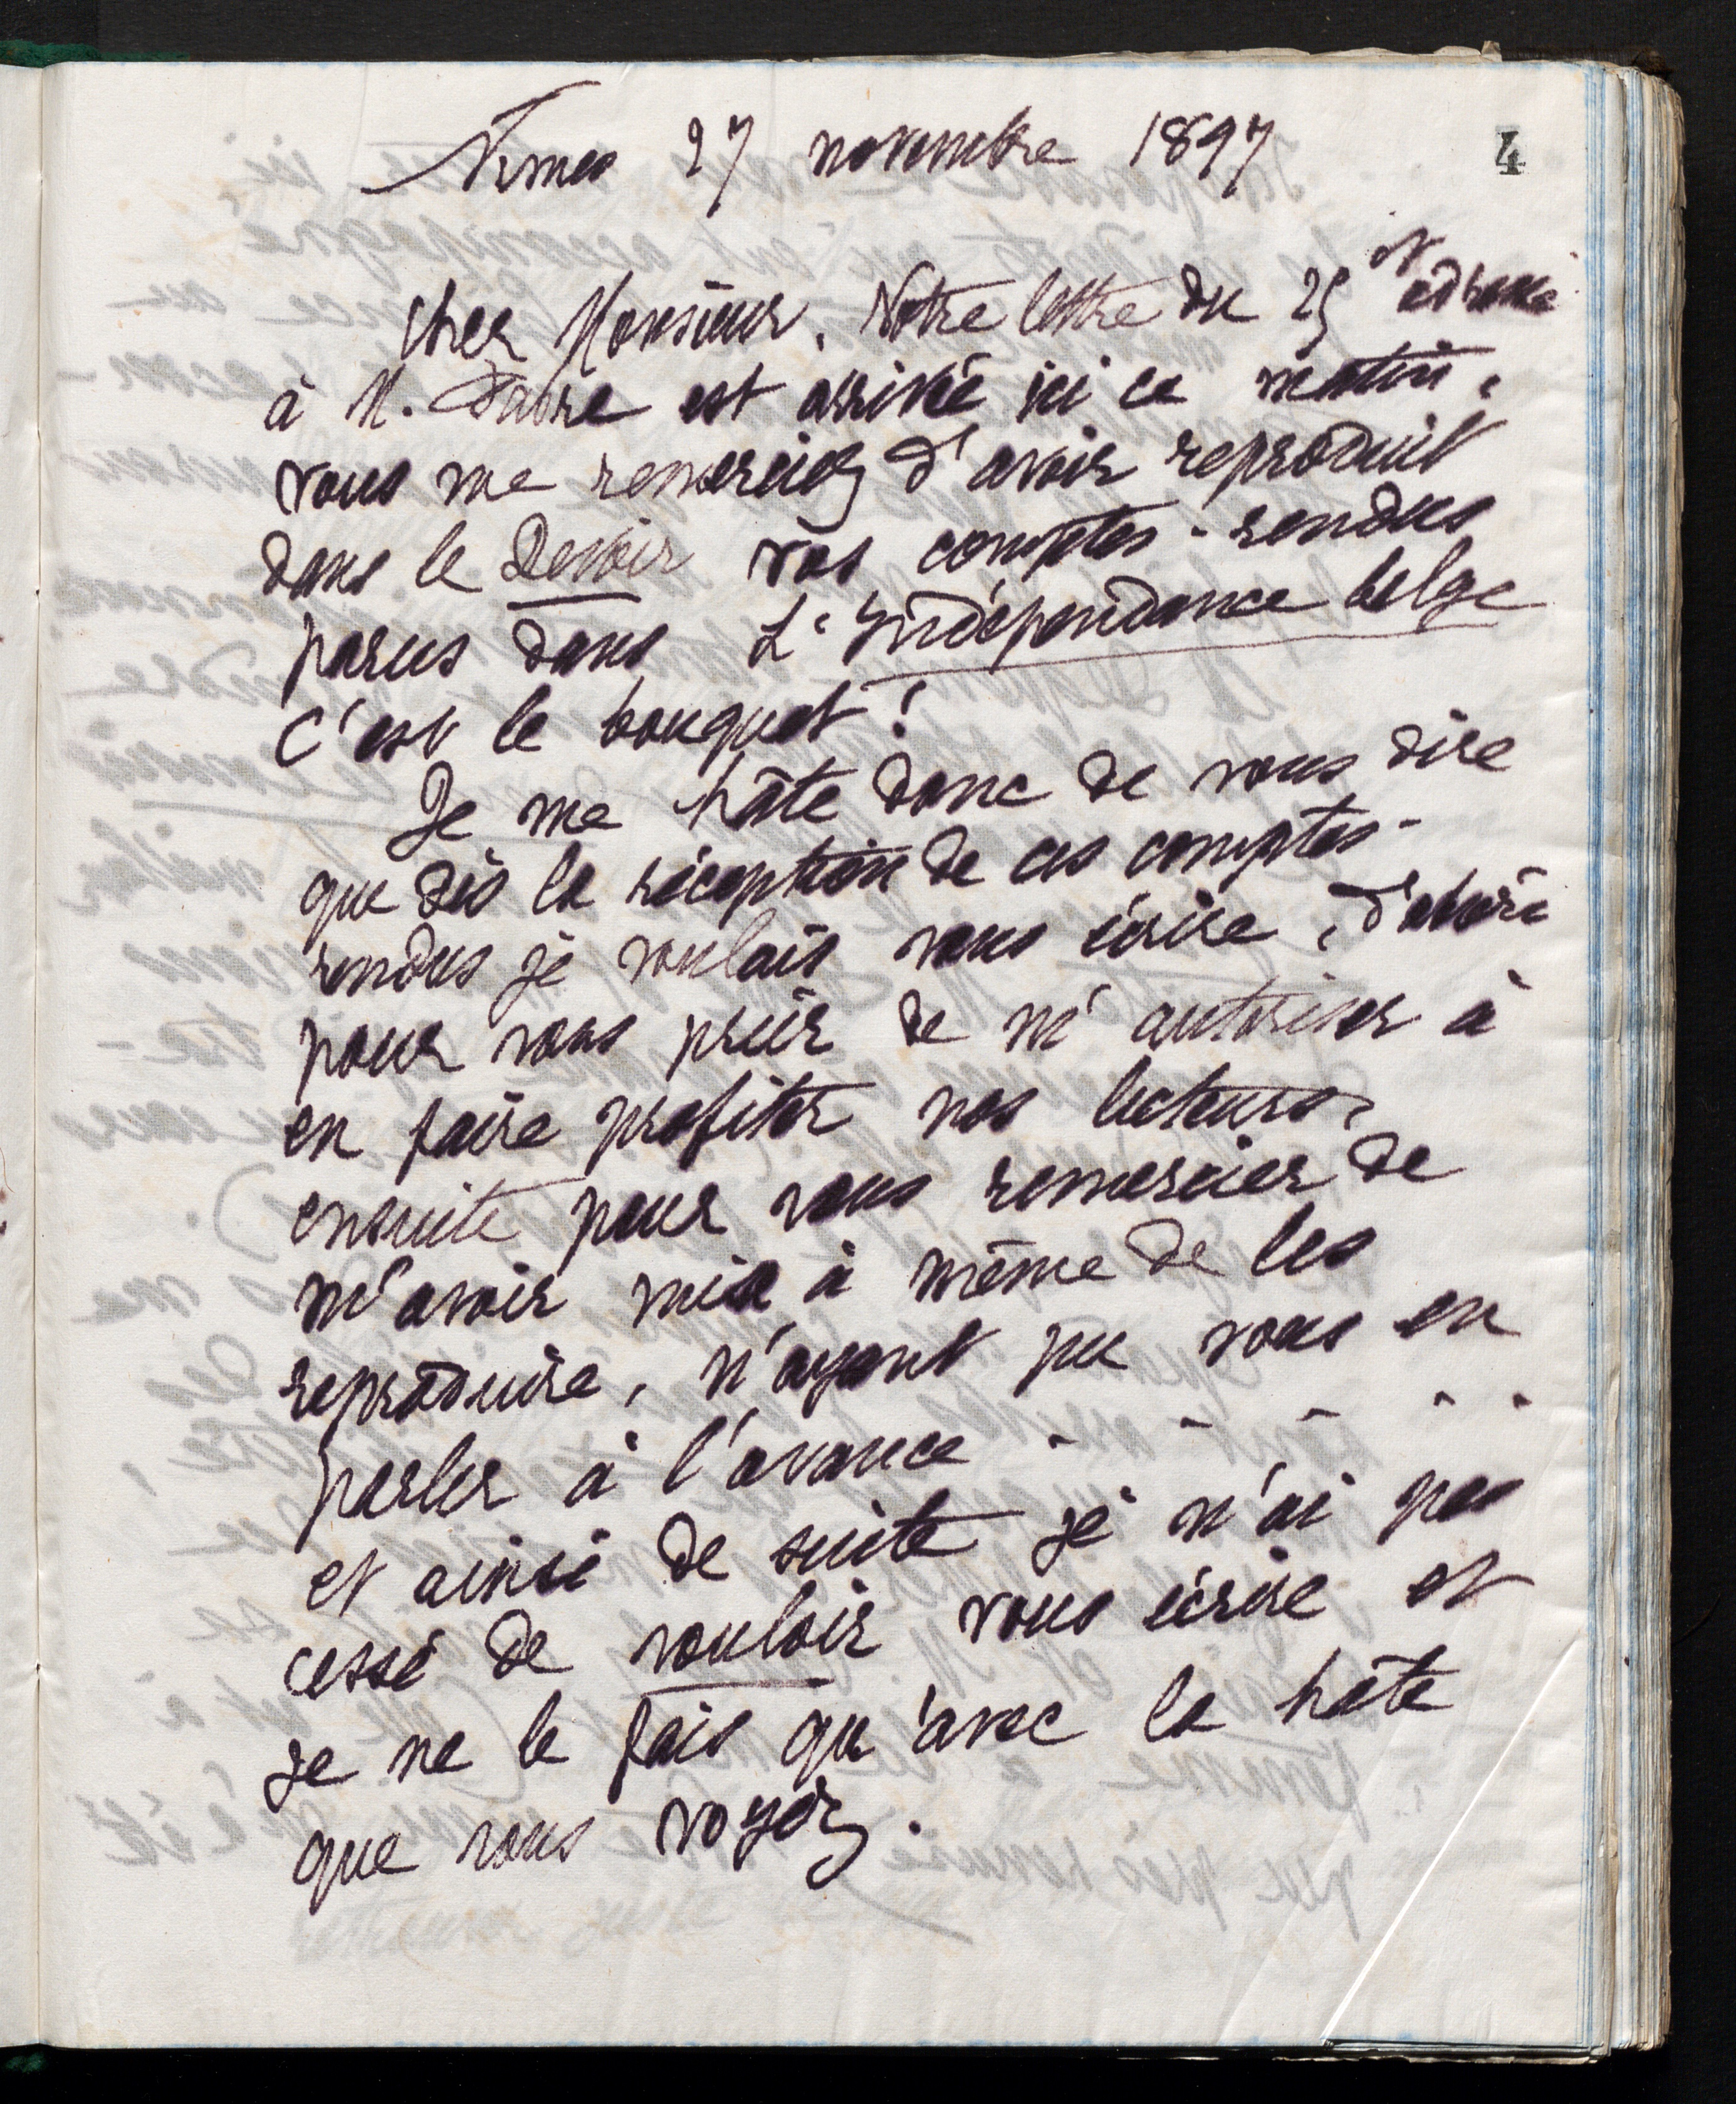 Nîmes 27 novembre 1897
4
Cher Monsieur. Votre lettre du 25 et adressée
à M. Fabre est arrivée ici ce matin,
vous me remerciez d'avoir reproduit
dans le Devoir vos comptes-rendus
parus dans L'Indépendance belge
C'est le bouquet !
Je me hâte donc de vous dire
que dès la réception de ces comptes-
rendus je voulais vous écrire, d'abord
pour vous prier de m'autoriser à
en faire profiter nos lecteurs,
ensuite pour vous remercier de
m'avoir mise à même de les
reproduire, n'ayant pu vous en
parler à l'avance - - - - -
et ainsi de suite je n'ai pas
cessé de vouloir vous écrire et
je ne le fais qu'avec la hâte
que vous voyez.